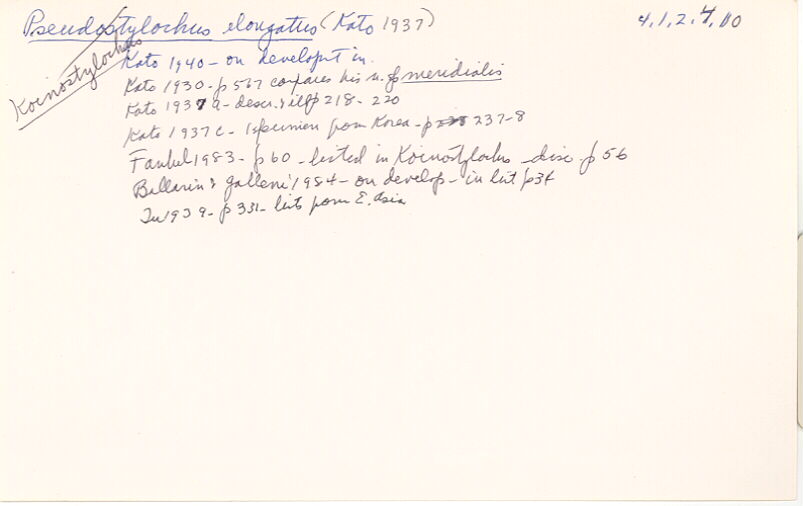 Pseudostylochus elongatus (Kato 1937) 4,1,2,7,10
Koinostylochus
Kato 1940 - on developt in.
Kato 1930 - p 567 compares his n. sp meridialis
Kato 1937a - descr. & ill p 218 - 220
Kato 1937c - 1 specimen from Korea - p 237-8
Faubel 1983 - p 60 - listed in Koinostylochus - disc p 56
Ballarin & Galleni 1984 - on develop - in list p 34
Tu 1939 - p 331 - lists from E. Asia